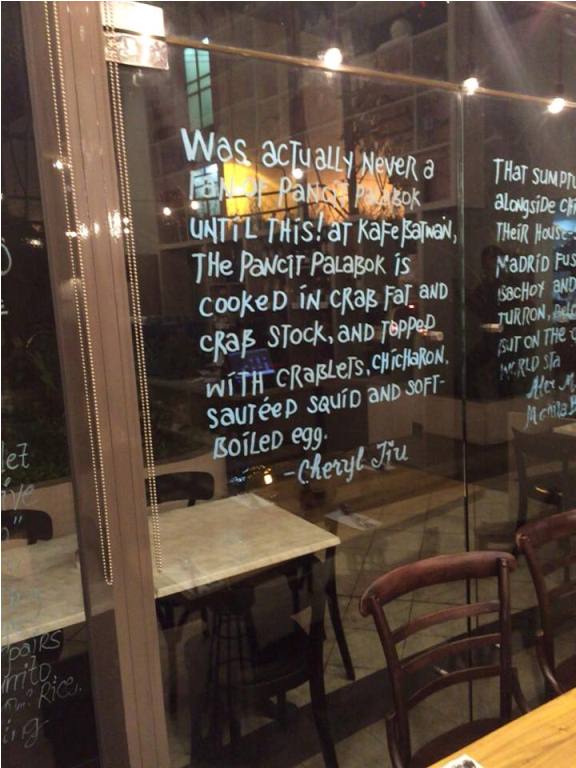 Was actually never a
Fan of Pancit Palabok
until this! At Kafe Batwan,
the Pancit Palabok is
cooked in crab fat and
crab stock, and topped
with crablets, chicharon,
sautéed squid and soft-
boiled egg.
-Cheryl Tiu
That sumptu
alongside chi
their house
Madrid Fus
Bachoy and
turron,
But on the
World Sta
Alex M
Manila B
let
ive
pairs
rrito
Rice,
ing-